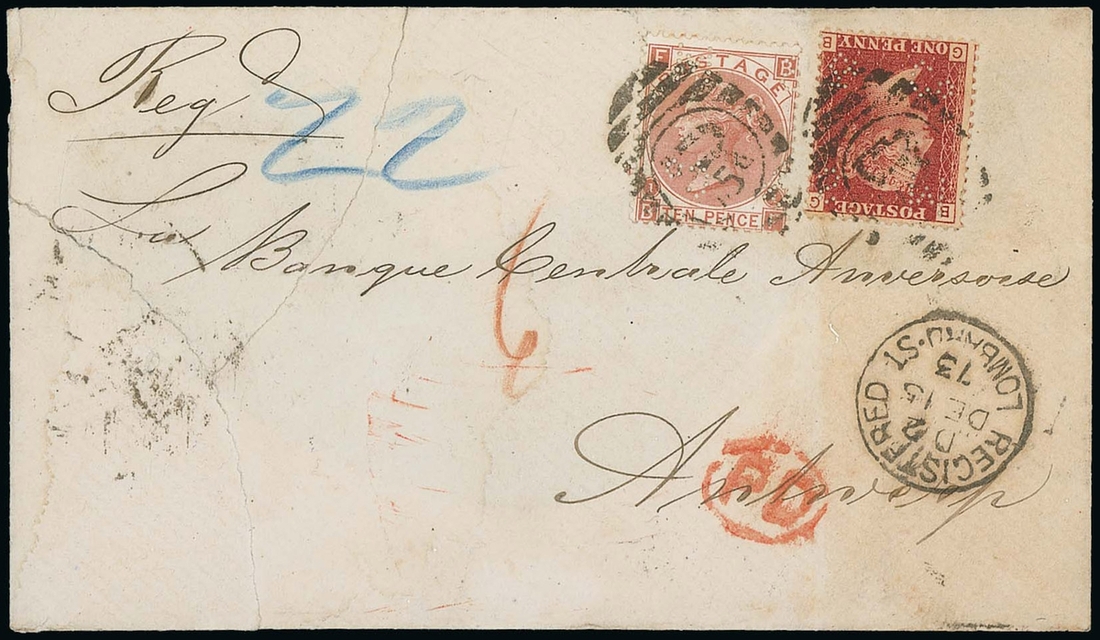 Regd
22
F POSTAGE B
B TEN PENCE F
B ONE PENNY G
G POSTAGE E
La Banque Centrale Anversoise
6
Antwerp
PD
REGISTERED LOMBARD·ST
D
DE 15
73